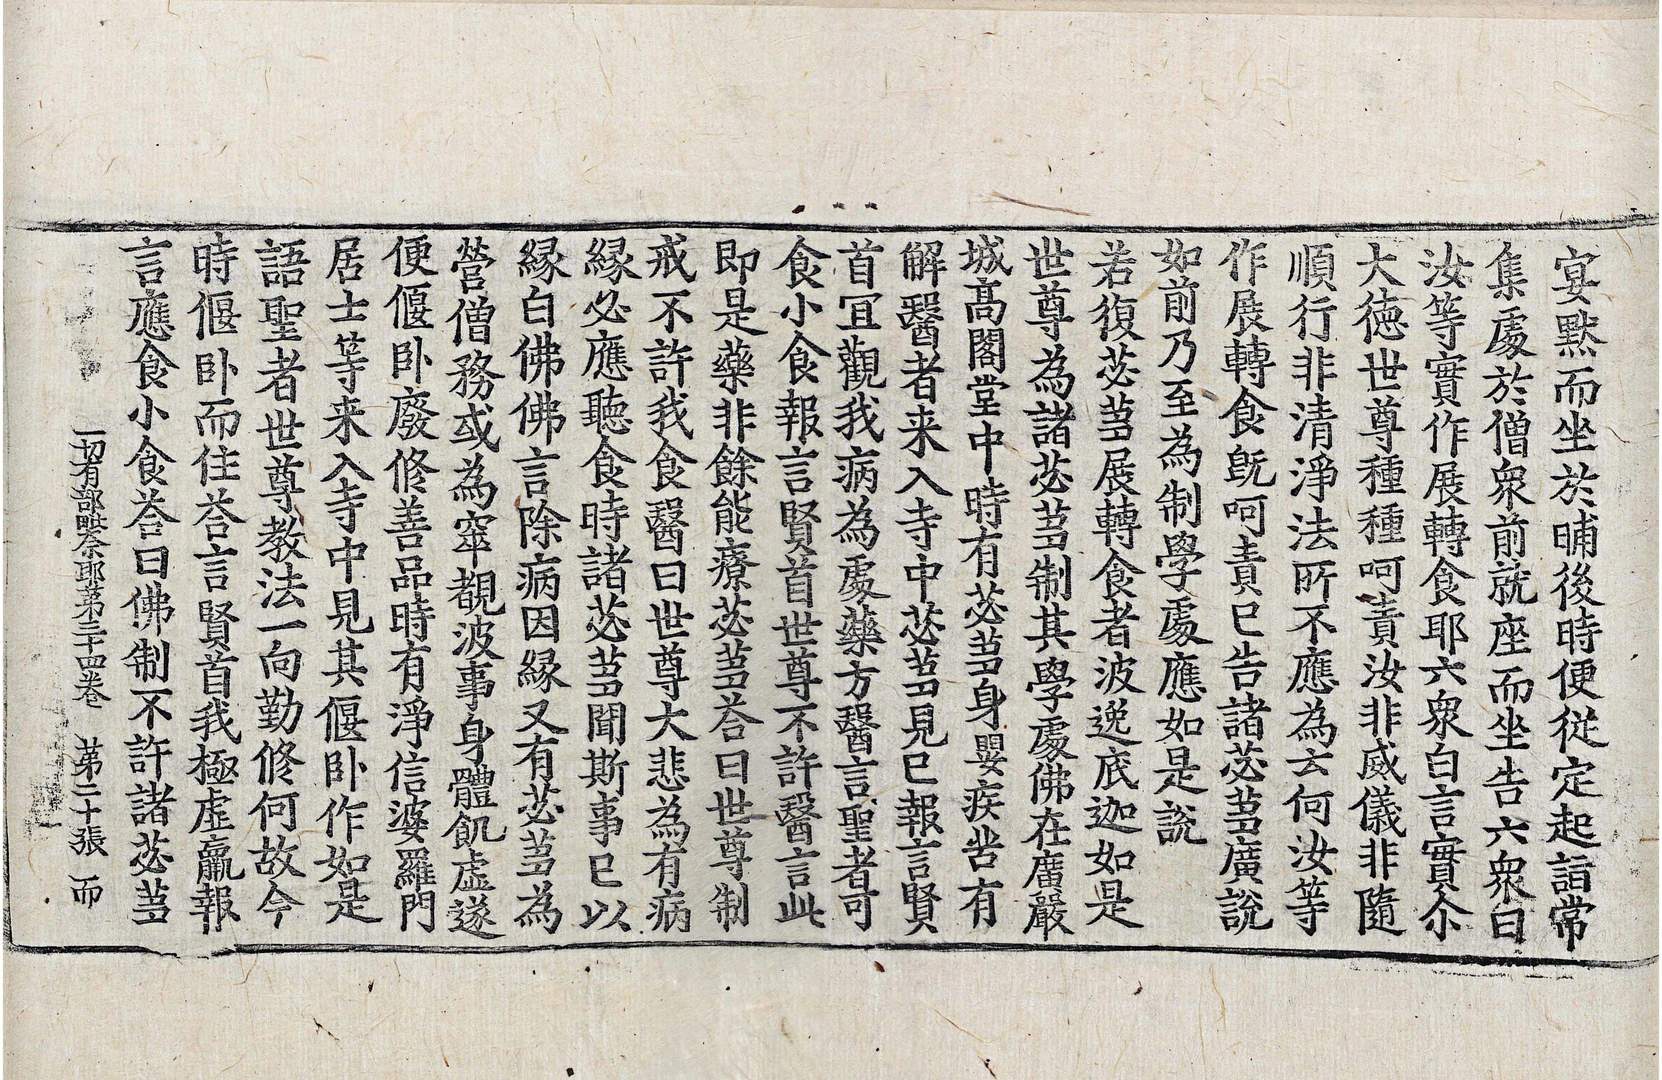 宴黙而坐於晡後時便從定起詣常
集處於僧衆前就座而坐告六衆曰
汝等實作展轉食耶六衆白言實尒
大徳世尊種種呵責汝非威儀非隨
順行非清淨法所不應為云何汝等
作展轉食旣呵責已告諸苾芻廣說
如前乃至為制學處應如是說
若復苾芻展轉食者波逸底迦如是
世尊為諸苾芻制其學處佛在廣嚴
城髙閣堂中時有苾芻身嬰疾苦有
解醫者来入寺中苾芻見已報言賢
首冝觀我病為處藥方醫言聖者可
食小食報言賢首世尊不許醫言此
即是藥非餘能療苾芻荅曰世尊制
戒不許我食醫曰世尊大悲為有病
縁必應聽食時諸苾芻聞斯事已以
縁白佛佛言除病因縁又有苾芻為
營僧務或為窣覩波事身體飢虛遂
便偃卧廢修善品時有淨信婆羅門
居士等来入寺中見其偃卧作如是
語聖者世尊教法一向勤修何故今
時偃卧而住荅言賢首我極虛羸報
言應食小食荅曰佛制不許諸苾芻
一切有部毗奈耶苐三十四卷 苐二十張 而